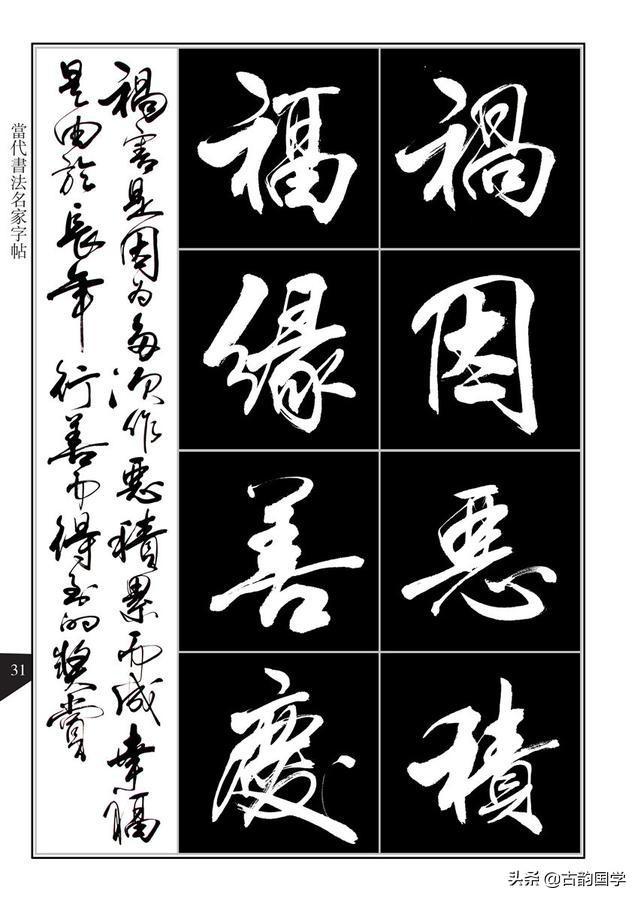 禍因惡積
福緣善慶
禍害是因为多次作惡積累而成幸福
是由於長年行善而得到的奖賞
當代書法名家字帖
31
头条 @古韵国学